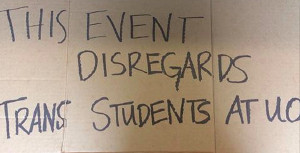 THIS EVENT
DISREGARDS
TRANS STUDENTS AT UO